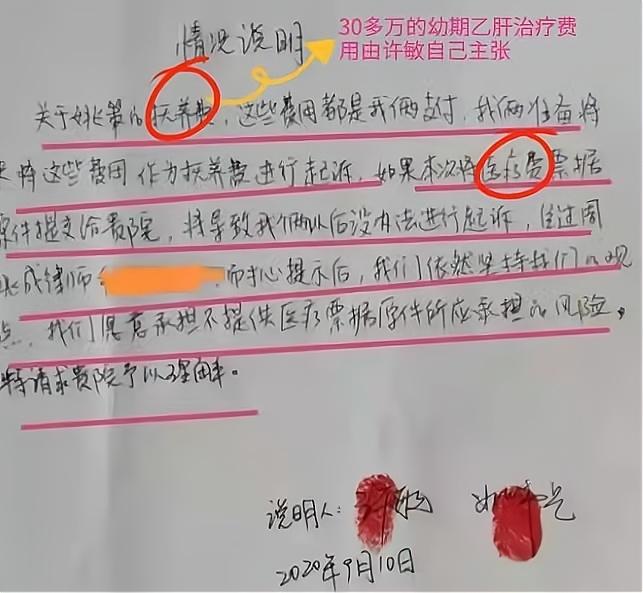 30多万的幼期乙肝治疗费
用由许敏自己主张
情况说明
关于姚策的抚养费，这些费用都是我俩支付，我俩准备将
来将这些费用作为抚养费进行起诉，如果本次将医疗费票据
原件提交给贵院，将导致我们俩以后没办法进行起诉，经过周
兆成律师 耐心提示后，我们依然坚持我们的观
点，我们愿意承担不提供医疗票据原件所应承担的风险。
特请求贵院予以理解。
说明人：许敏
2020年9月10日